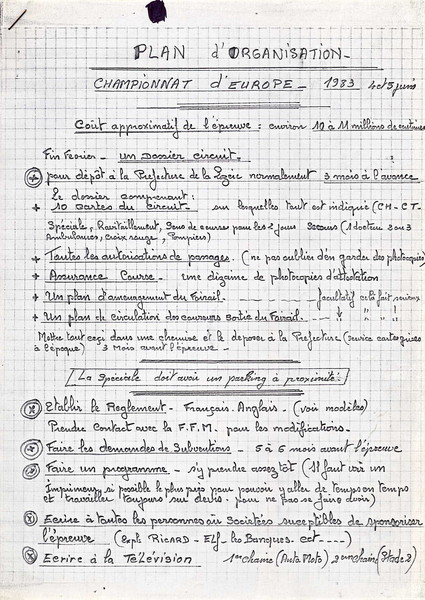 PLAN d'ORGANISATION_
CHAMPIONNAT d'EUROPE_ 1983 4 et 5 juin
Coût approximatif de l'épreuve : environ 10 à 11 millions de centimes
Fin Fevrier _ un Dossier circuit.
pour dépôt à la Prefecture de la Lozère normalement 3 mois à l'avance
Le dossier comprenant:
+ 10 cartes du circuit _ sur lesquelles tout est indiqué (CH_CT_
Spéciale, Ravitaillement, Sens de course pour les 2 jours Secours (1 docteur 2 ou 3
Ambulances, croix rouge, Pompiers)
+ Toutes les autorisations de passages. (ne pas oublier d'en garder des photocopies)
+ Assurance Course _ une dizaine de photocopies d'attestation
+ Un plan d'amenagement du Foirail. facultatif cela fait serieux
+ Un plan de circulation des coureurs sortie du Foirail. " " "
Mettre tout ceci dans une chemise et le deposer à la Prefecture (service cartes grises
à l'époque) 3 mois avant l'épreuve _
La Speciale doit avoir un parking à proximité!
Etablir le Reglement _ Français. Anglais _ (voir modèles)
Prendre Contact avec la F.F.M. pour les modifications.
Faire les demandes de Subventions _ 5 à 6 mois avant l'épreuve
Faire un programme _ s'y prendre assez tôt (Il faut voir un
Imprimeur si possible le plus près pour pouvoir y aller de temps en temps
et travailler toujours sur devis. pour ne pas se faire avoir)
Ecrire à toutes les personnes ou Sociétées suceptibles de sponsoriser
l'épreuve (expl: RICARD _ ELF _ les Banques. ect ----)
Ecrire à la Télévision 1ere chaine (Auto Moto) 2eme chaine (Stade 2)